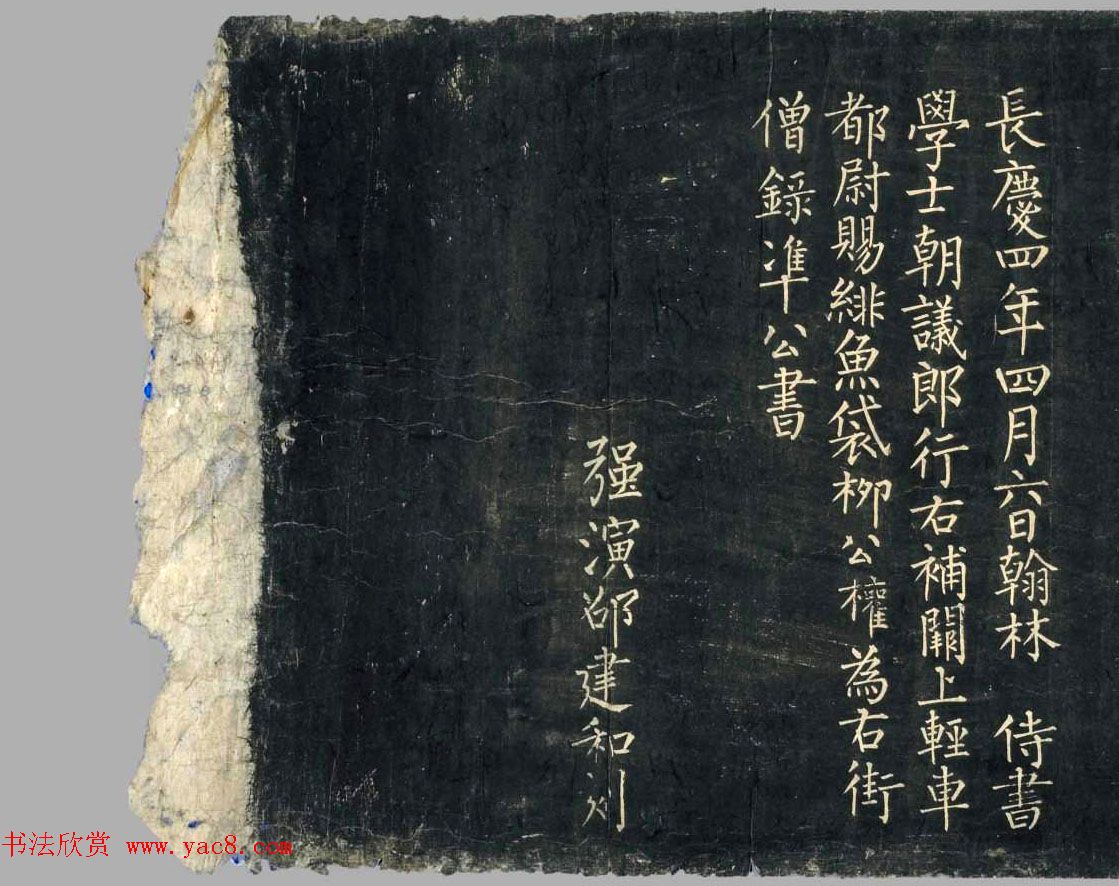 長慶四年四月六日翰林 侍書
學士朝議郎行右補闕上輕車
都尉賜緋魚袋柳公權為右街
僧錄准公書
强演邵建和刻
书法欣赏 www.yac8.com